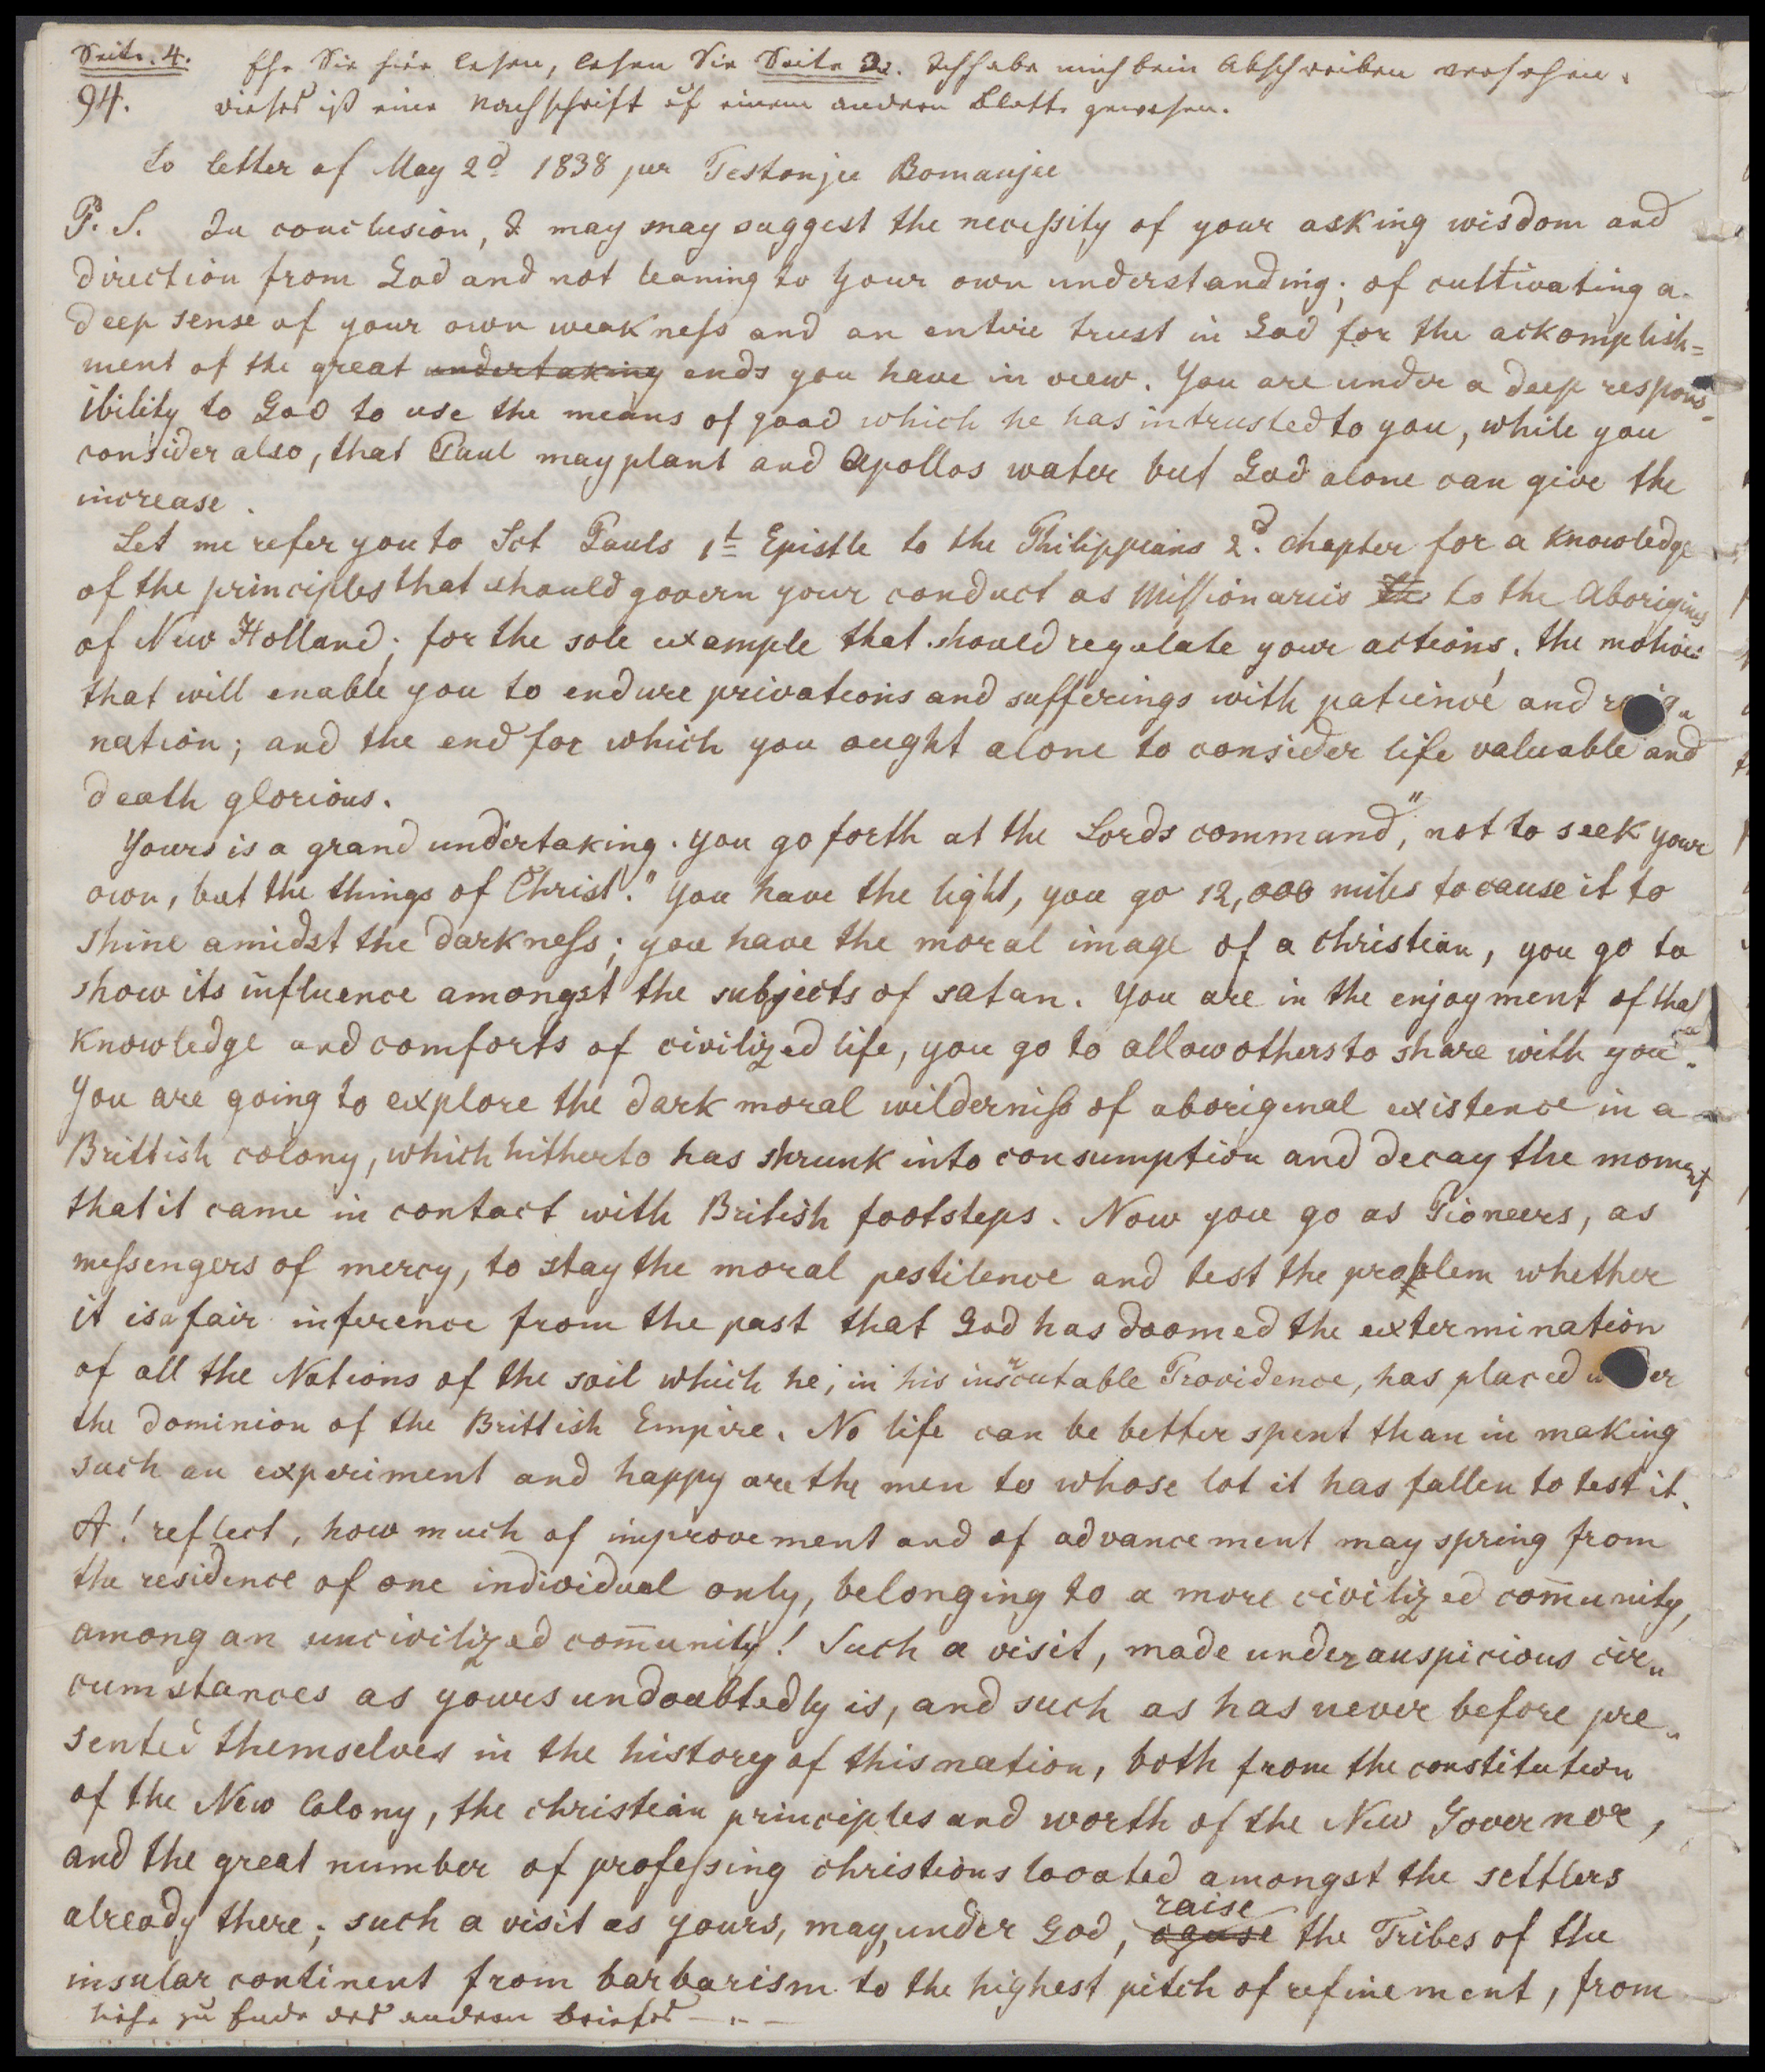 Seite. 4. Ehe Sie hier lesen, lesen Sie Seite 3. Ich habe mich beim Abschreiben versehen.
94. dieses ist eine Nachschrift auf einem andern Blatte gewesen.
to letter of May 2d 1838 per Testonjee Bomanjee
P. S. In conclusion, I may may suggest the necessity of your asking wisdom and
direction from God and not leaning to your own understanding; of cultivating a
deep sense of your own weakness and an entire trust in God for the ackomplish=
ment of the great undertaking ends you have in view. You are under a deep respons-
ibility to God to use the means of good which he has intrusted to you, while you
consider also, that Paul may plant and Apollos water but God alone can give the
increase.
Let me refer you to Sct Pauls 1t Epistle to the Philippians 2d. chapter for a knowledge
of the principles that should govern your conduct as Missionaries to the Aborigines
of New Holland; for the sole example that should regulate your actions, the motives
that will enable you to endure privations and sufferings with patience and resig„
nation; and the end for which you ought alone to consider life valuable and
death glorious.
Yours is a grand undertaking. you go forth at the Lords command, "not to seek your
own, but the things of Christ." you have the light, you go 12,000 miles to cause it to
shine amidst the darkness; you have the moral image of a christian, you go to
show its influence amongst the subjects of satan. You are in the enjoyment of that
knowledge and comforts of civilized life, you go to allow others to share with you.
You are going to explore the dark moral wilderniss of aboriginal existence in a
Brittish colony, which hitherto has shrunk into consumption and decay the moment
that it came in contact with British footsteps. Now you go as Pioneers, as
messengers of mercy, to stay the moral pestilence and test the problem whether
it is a fair inference from the past that God has doomed the extermination
of all the Nations of the soil which he, in his inscrutable Providence, has placed under
the dominion of the Brittish Empire. No life can be better spent than in making
such an experiment and happy are the men to whose lot it has fallen to test it.
A! reflect, how much of improvement and of advancement may spring from
the residence of one individual only, belonging to a more civilized com̄unity,
among an uncivilized com̄unity! Such a visit, made under auspicious cir„
cumstances as yours undoubtedly is, and such as has never before pre„
sented themselves in the history of this nation, both from the constitution
of the New Colony, the christian principles and worth of the New Governor,
and the great number of professing christions located amongst the settlers
already there; such a visit as yours, may, under God, raise the Tribes of the
insular continent from barbarism to the highest pitch of refinement, from
siehe zu Ende des andern Briefes